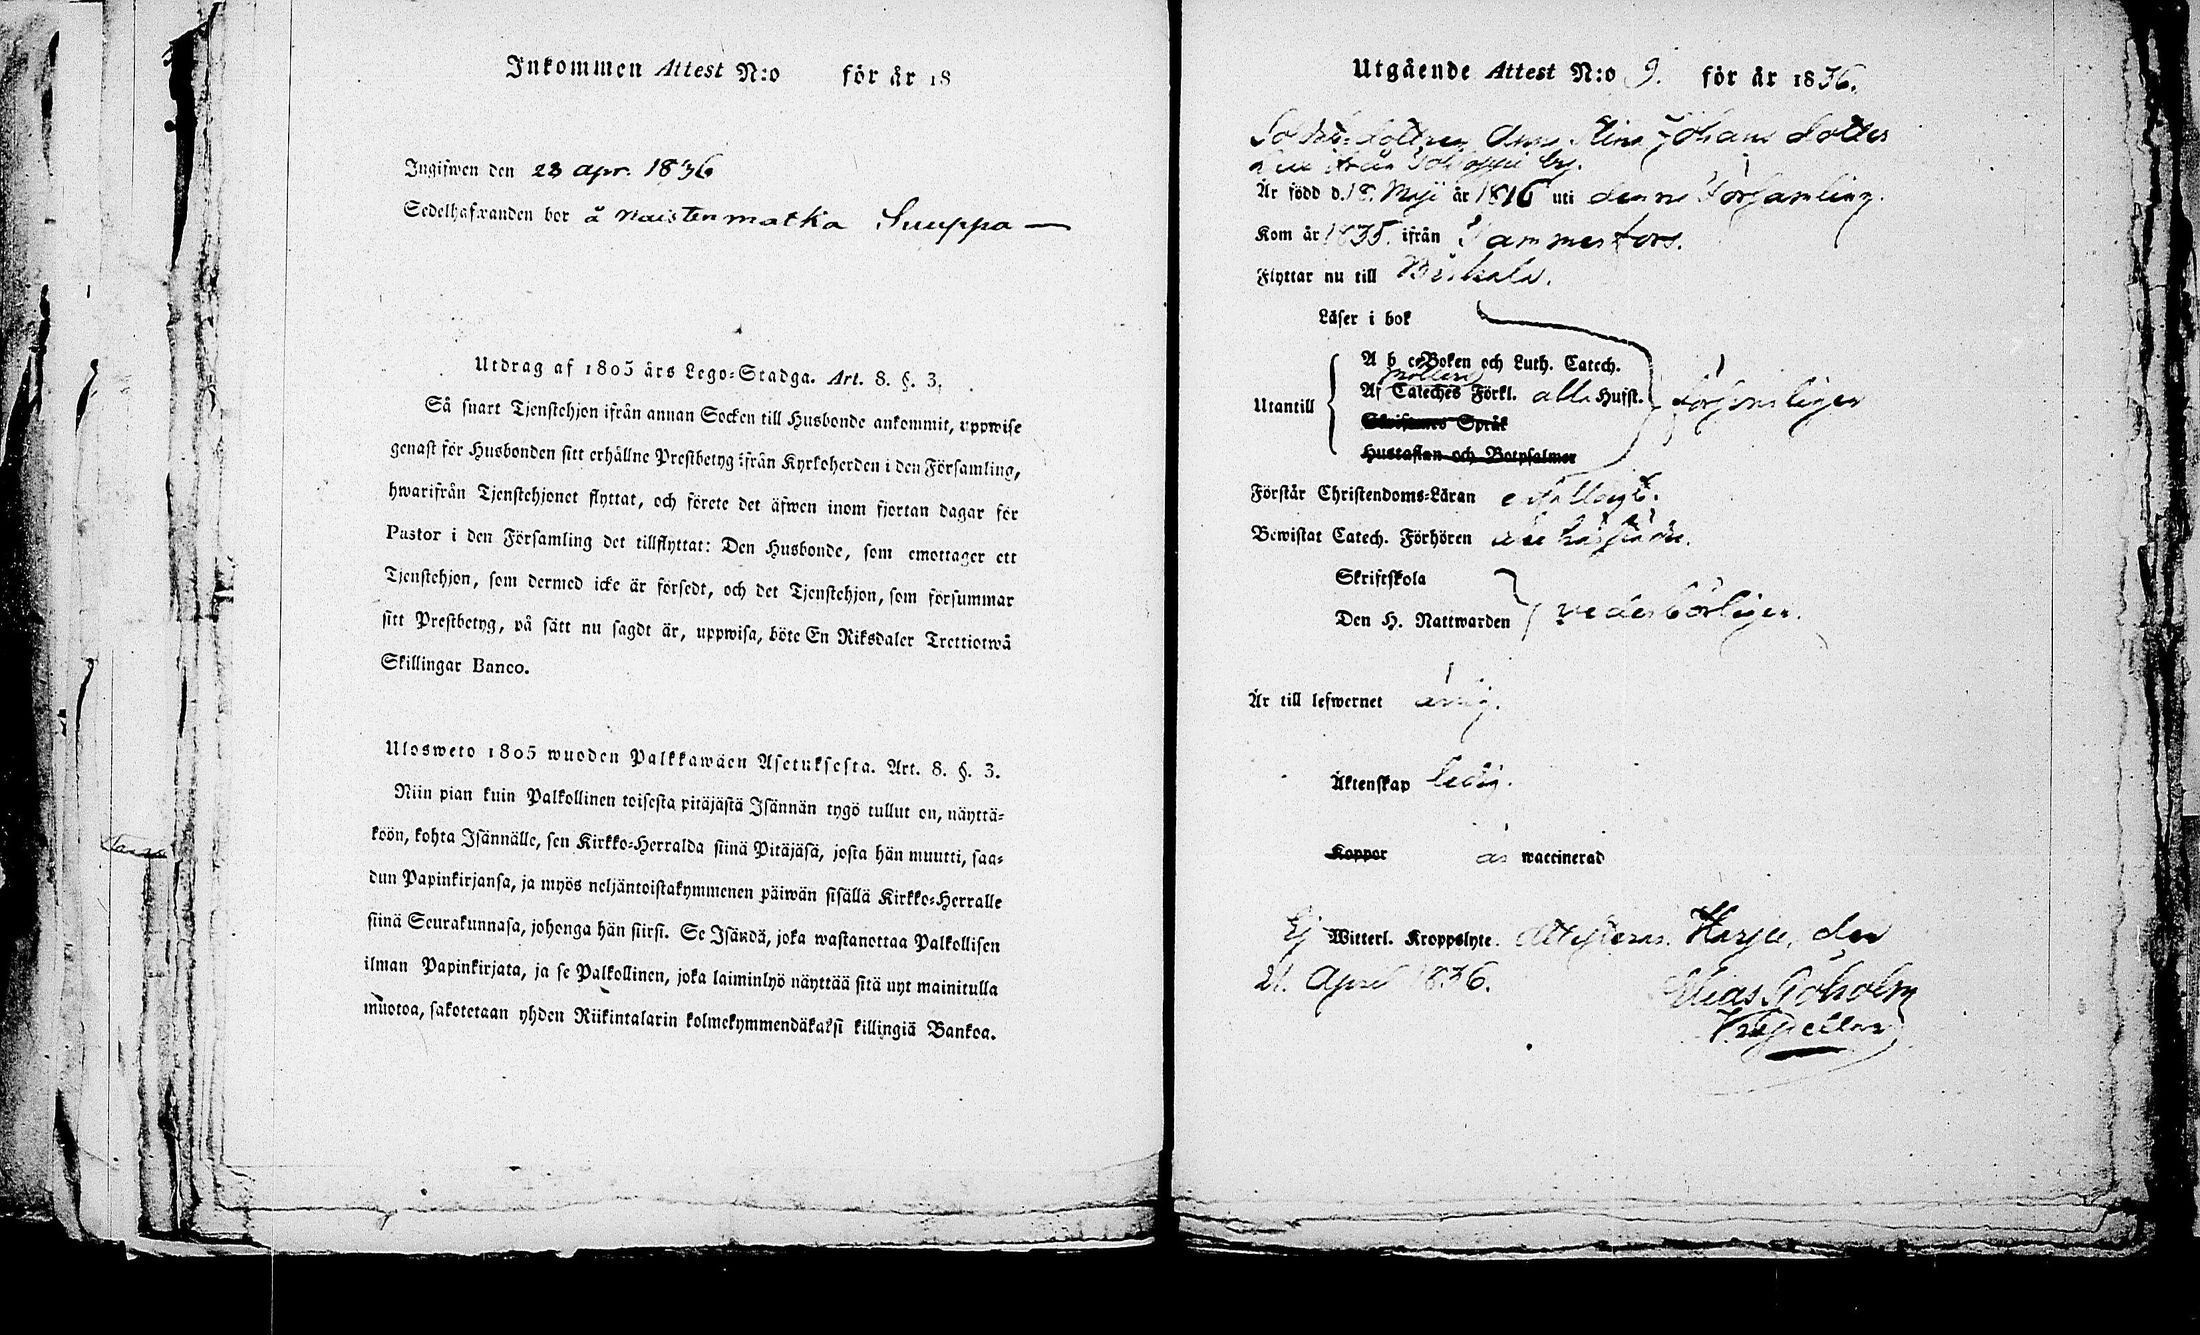 Inkommen Attest N:o för år 18
Ingifwen den 23 apr. 1836
Sedelhafwanden bor å naistenmatka Suuppa —
Utdrag af 1805 års Lego-Stadga. Art. 8. §. 3.
Så snart Tjenstehjon ifrån annan Socken till Husbonde ankommit, uppwise
genast för Husbonden sitt erhållne Prestbetyg ifrån Kyrkoherden i den Församling,
hwarifrån Tjenstehjonet flyttat, och förete det äfwen inom fjortan dagar för
Pastor i den Församling det tillflyttat: Den Husbonde, som emottager ett
Tjenstehjon, som dermed icke är försedt, och det Tjenstehjon, som försummar
sitt Prestbetyg, på sätt nu sagdt är, uppwisa, böte En Riksdaler Trettiotwå
Skillingar Banco.
Ulosweto 1805 wuoden Palkkawäen Asetuksesta. Art. 8. §. 3.
Niin pian kuin Palkollinen toisesta pitäjästä Isännän tygö tullut on, näyttä-
köön, kohta Isännälle, sen Kirkko-Herralda siinä Pitäjäsä, josta hän muutti, saa-
dun Papinkirjansa, ja myös neljäntoistakymmenen päiwän sisällä Kirkko-Herralle
siinä Seurakunnasa, johonga hän siirsi. Se Isändä, joka wastanottaa Palkollisen
ilman Papinkirjata, ja se Palkollinen, joka laiminlyö näyttää sitä nyt mainitulla
muotoa, sakotetaan yhden Riikintalarin kolmekymmendäkaksi killingiä Bankoa.
Utgående Attest N:o 9. för år 1836.
Anna Stina Johans Dotter
ifrån by.
Är född d. 18 Maji år 1816 uti denna Församling.
Kom år 1835. ifrån Tammerfors.
Flyttar nu till Birkala.
Läser i bok
A b c-Boken och Luth. Catech.
Möllers
Utantill Af Cateches Förkl. alla Hufst. försvarligen
Skriftenes Språk
Hustaflan och Botpsalmer
Förstår Christendoms-Läran enfalligt.
Bewistat Catech. Förhören
Skriftskola
Den H. Nattwarden vederbörligen.
Är till lefwernet ärlig.
Äktenskap ledig.
Koppor är waccinerad
Ej Witterl. Kroppslyte. Attesteras. Harju, den
21. April 1836. Elias